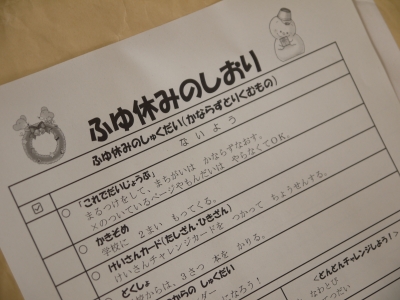 ふゆ休みのしおり
ふゆ休みのしゅくだい(かならずとりくむもの)
ないよう
「これでだいじょうぶ」
まるつけをして、まちがいは かならずなおす。
×のついているページやもんだいは やらなくてOK。
かきぞめ
学校に 2まい もってくる。
けいさんカード(たしざん・ひきざん)
けいさんチャレンジカードを つかって ちょうせんする。
どくしょ
からは、3さつ 本を かりる。
からの しゅくだい
になろう!
<どんどんチャレンジしよう!>
なわとび